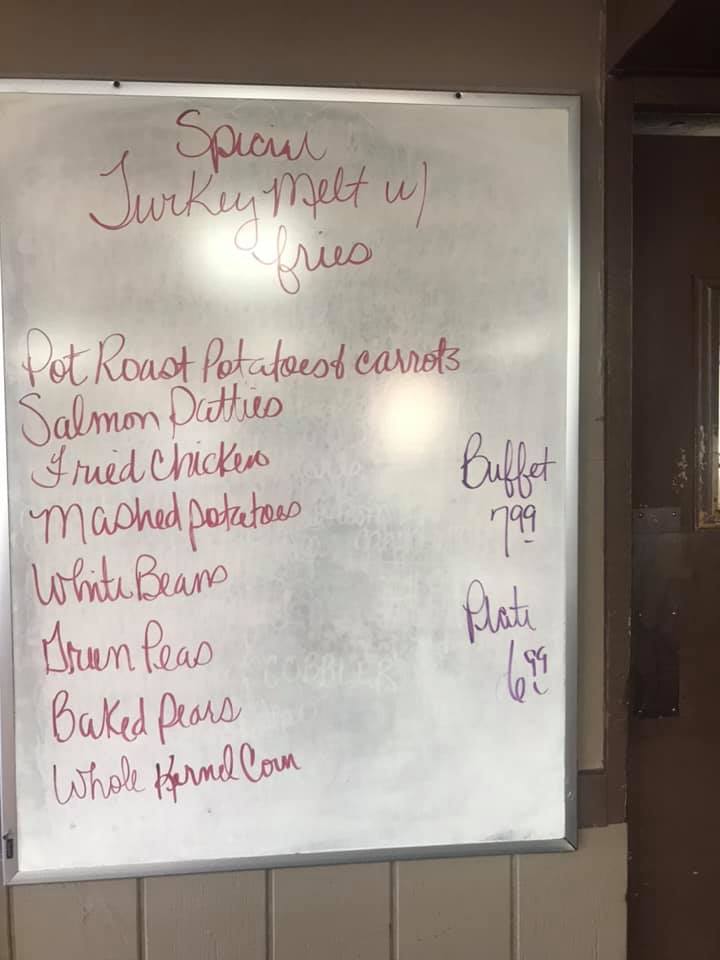 Special
Turkey Melt w/
fries
Pot Roast Potatoes & carrots
Salmon Patties
Fried Chicken
Mashed potatoes
White Beans
Green Peas
Baked Pears
Whole Kernel Corn
Buffet
7.99
Plate
6.99
COBBLER